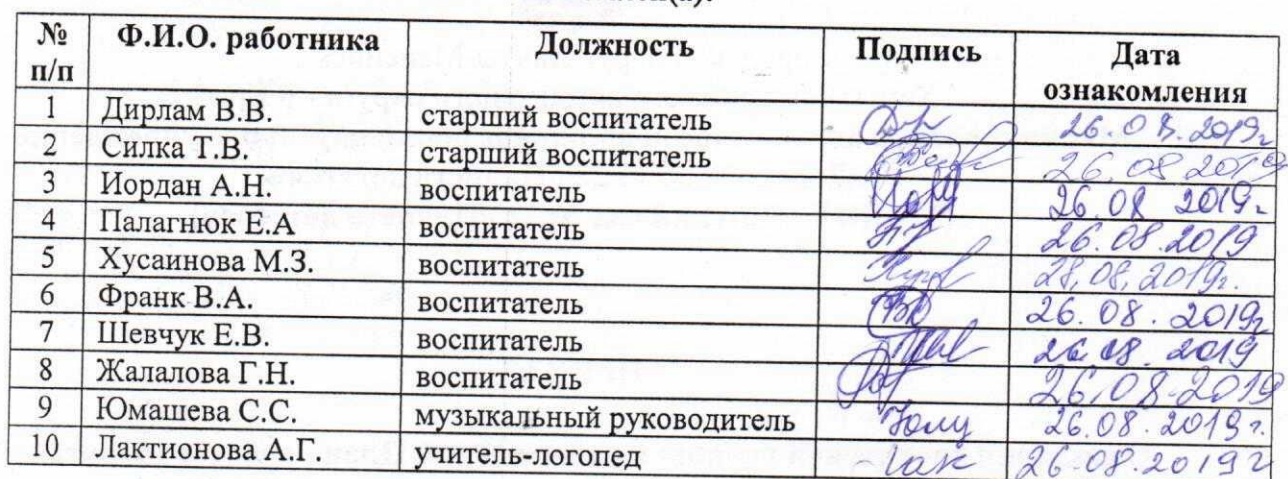 № п/п Ф.И.О. работника Должность Подпись Дата ознакомления
1 Дирлам В.В. старший воспитатель 26.08.2019г
2 Силка Т.В. старший воспитатель 26.08 2019
3 Иордан А.Н. воспитатель 26.08 2019г
4 Палагнюк Е.А воспитатель 26.08.2019
5 Хусаинова М.З. воспитатель 28.08.2019г.
6 Франк В.А. воспитатель 26.08.2019г
7 Шевчук Е.В. воспитатель 26 08 2019
8 Жалалова Г.Н. воспитатель 26.08.2019
9 Юмашева С.С. музыкальный руководитель 26.08.2019г.
10 Лактионова А.Г. учитель-логопед 26.08.2019г